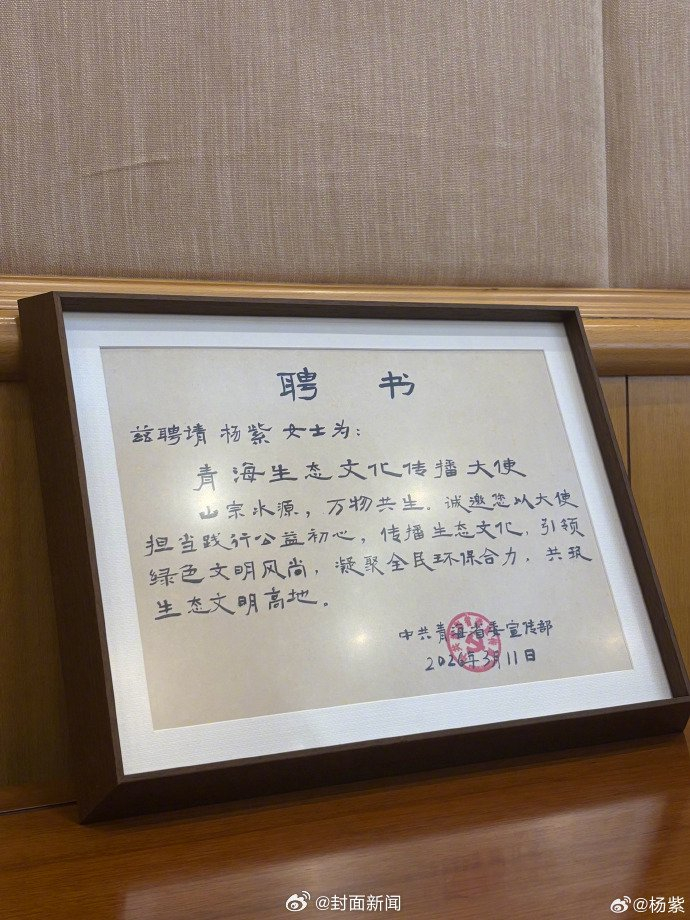 聘 书
兹聘请 杨紫 女士为：
青海生态文化传播大使
山宗水源，万物共生。诚邀您以大使
担当践行公益初心，传播生态文化，引领
绿色文明风尚，凝聚全民环保合力，共筑
生态文明高地。
中共青海省委宣传部
2026年3月11日
@封面新闻
@杨紫